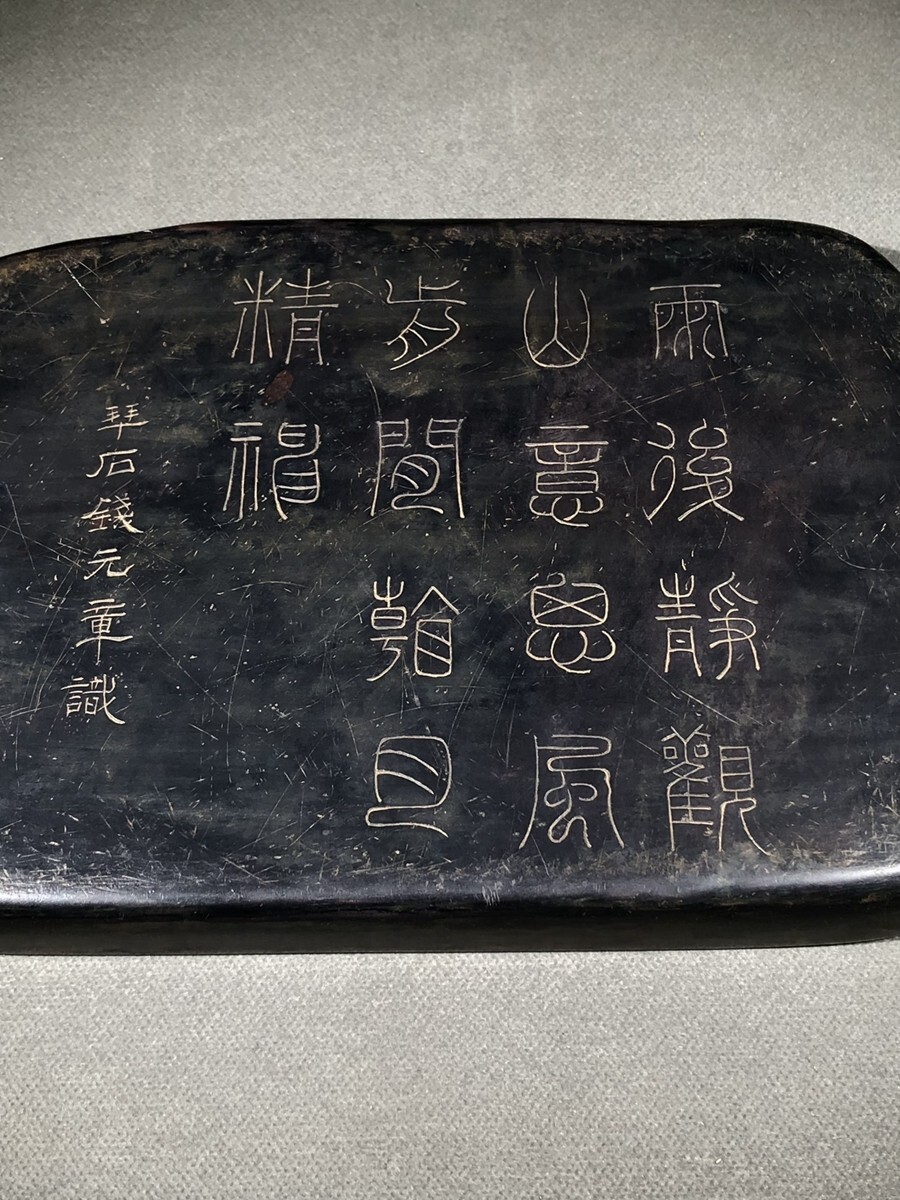 雨後靜觀
山意思風
前閒看月
精神
琴石錢元章識